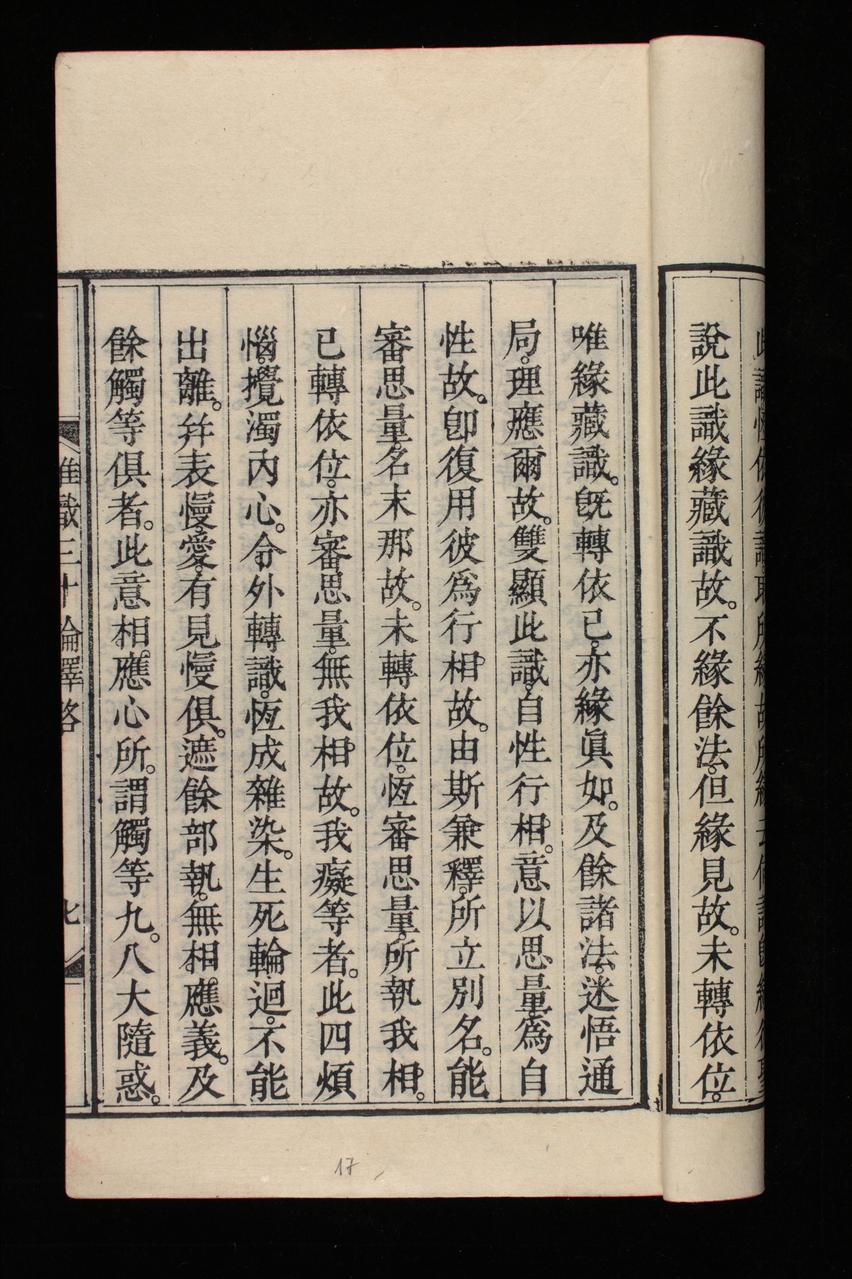 說此識緣藏識故。不緣餘法。但緣見故。未轉依位。
唯緣藏識。旣轉依已。亦緣眞如。及餘諸法。迷悟通
局。理應爾故。雙顯此識。自性行相。意以思量。爲自
性故。卽復用彼爲行相故。由斯兼釋。所立別名。能
審思量。名末那故。未轉依位。恆審思量。所執我相。
已轉依位。亦審思量。無我相故。我癡等者。此四煩
惱。攪濁內心。令外轉識。恆成雜染。生死輪迴。不能
出離。幷表慢。愛。有見慢俱。遮餘部執。無相應義。及
餘觸等俱者。此意相應心所。謂觸等九。八大隨惑。
唯識三十論釋略
七
17